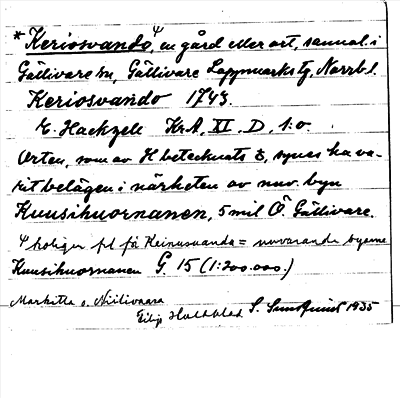 * Keriosvando, 4 en gård eller ort, sannol. i
Gällivare sn, Gällivare Lappmarks tg, Norrb. l.
Keriosvando 1743.
E. Hackzell Kr.A, XI, D, 1:o.
Orten, som av H betecknats , synes ha va-
rit belägen i närheten av nuv. byn
Kuusihuornanen, 5 mil Ö. Gällivare.
4 troligen fel få Keinusvanda = nuvarande byarne
Kuusihuornanen G. 15 (1:200.000.)
Markitta o. Niilivaara
Filip Hultblad S. Sundquist 1935